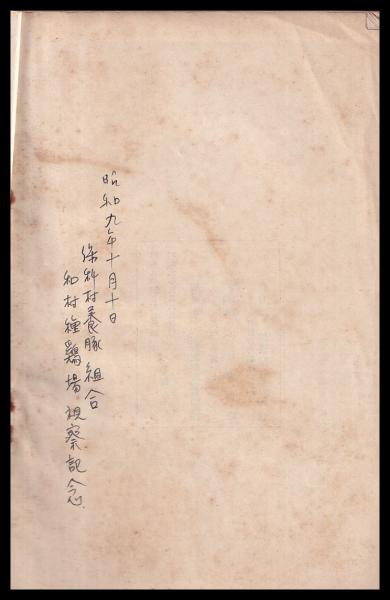 昭和九年十月十日
條村養豚組合
和村種鶏場視察記念